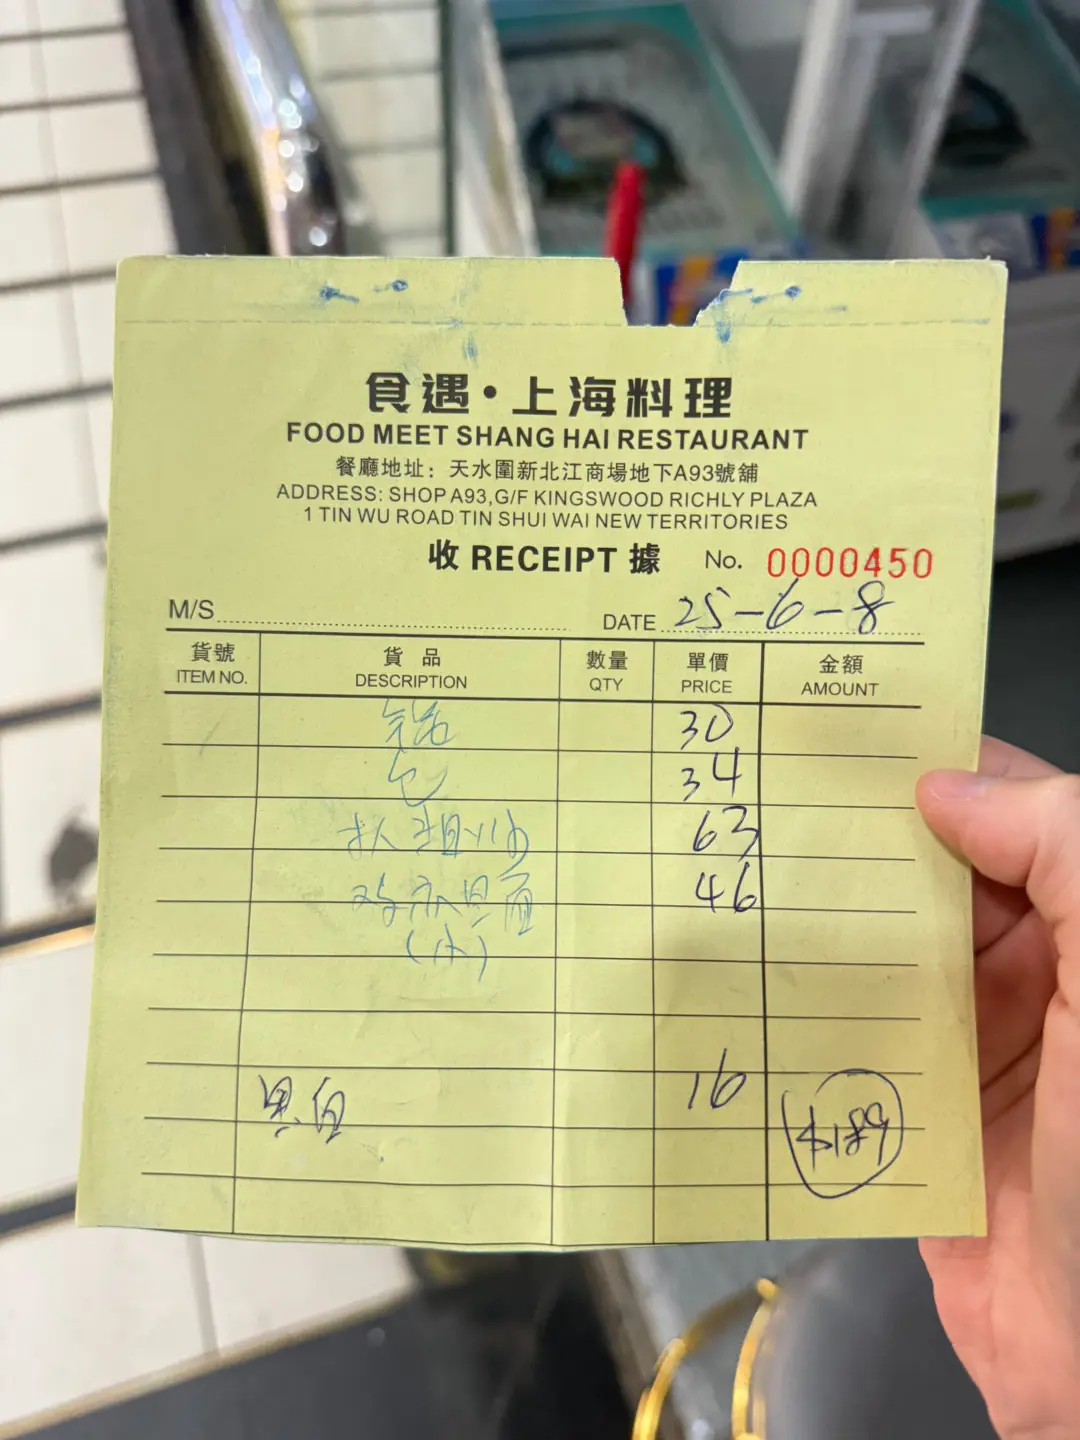 食遇•上海料理
FOOD MEET SHANG HAI RESTAURANT
餐廳地址：天水圍新北江商場地下A93號舖
ADDRESS: SHOP A93,G/F KINGSWOOD RICHLY PLAZA
1 TIN WU ROAD TIN SHUI WAI NEW TERRITORIES
收 RECEIPT 據 No. 0000450
M/S DATE 25-6-8
貨號 貨品 數量 單價 金額
ITEM NO. DESCRIPTION QTY PRICE AMOUNT
30
包 34
63
46
(小)
16
$189